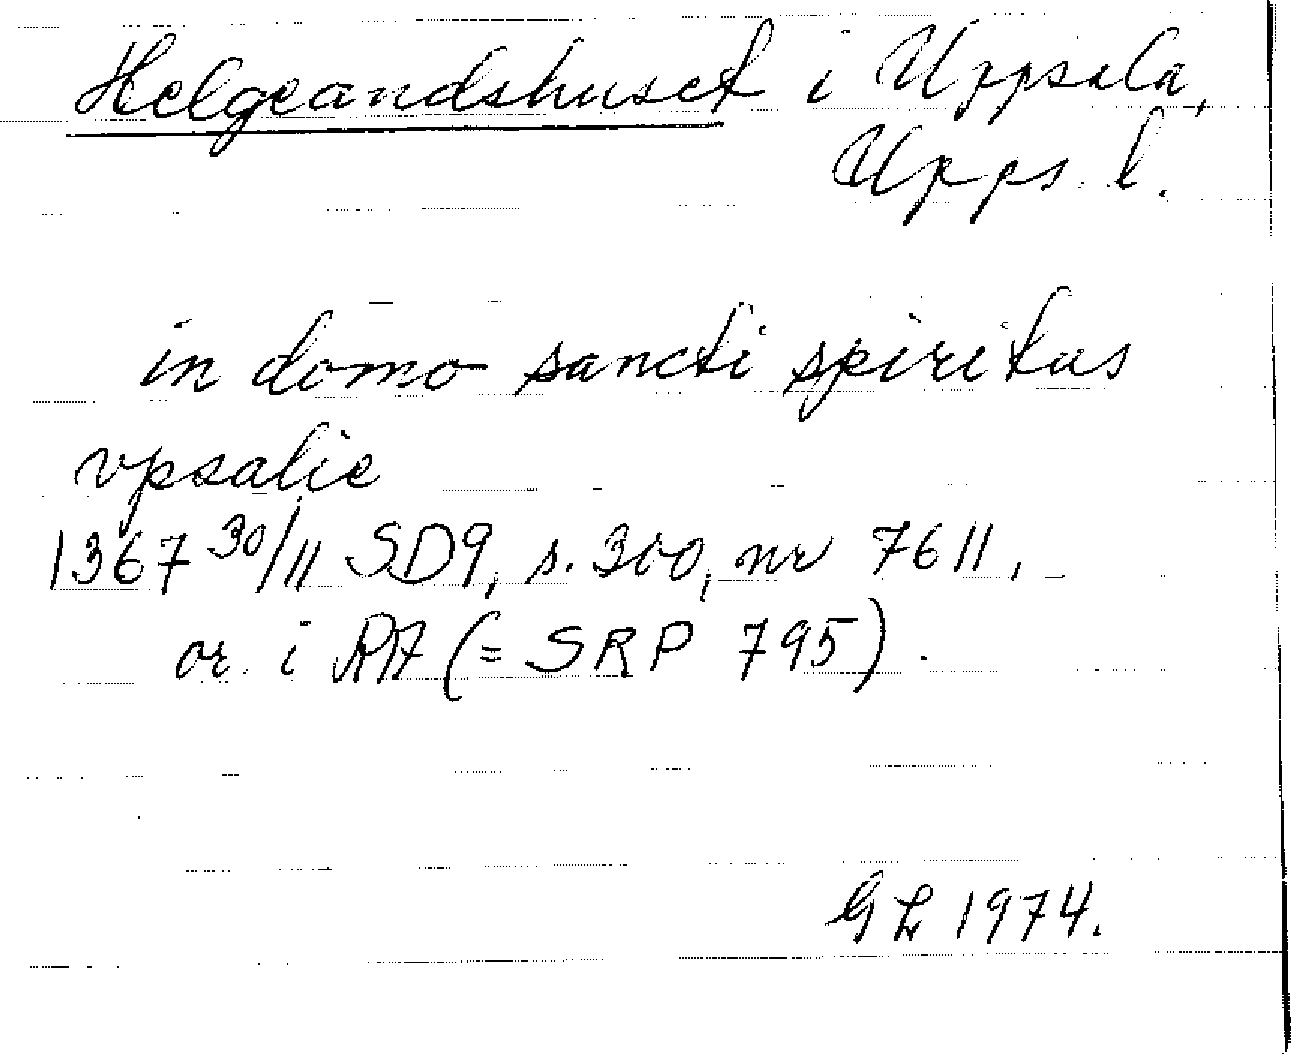 Helgeandshuset i Uppsala,
Upps. l.
in domo sancti spiritus
vpsalie
1367 30/11 SD9, s. 300, nr 7611,
or. i RA (= SRP 795).
GL 1974.